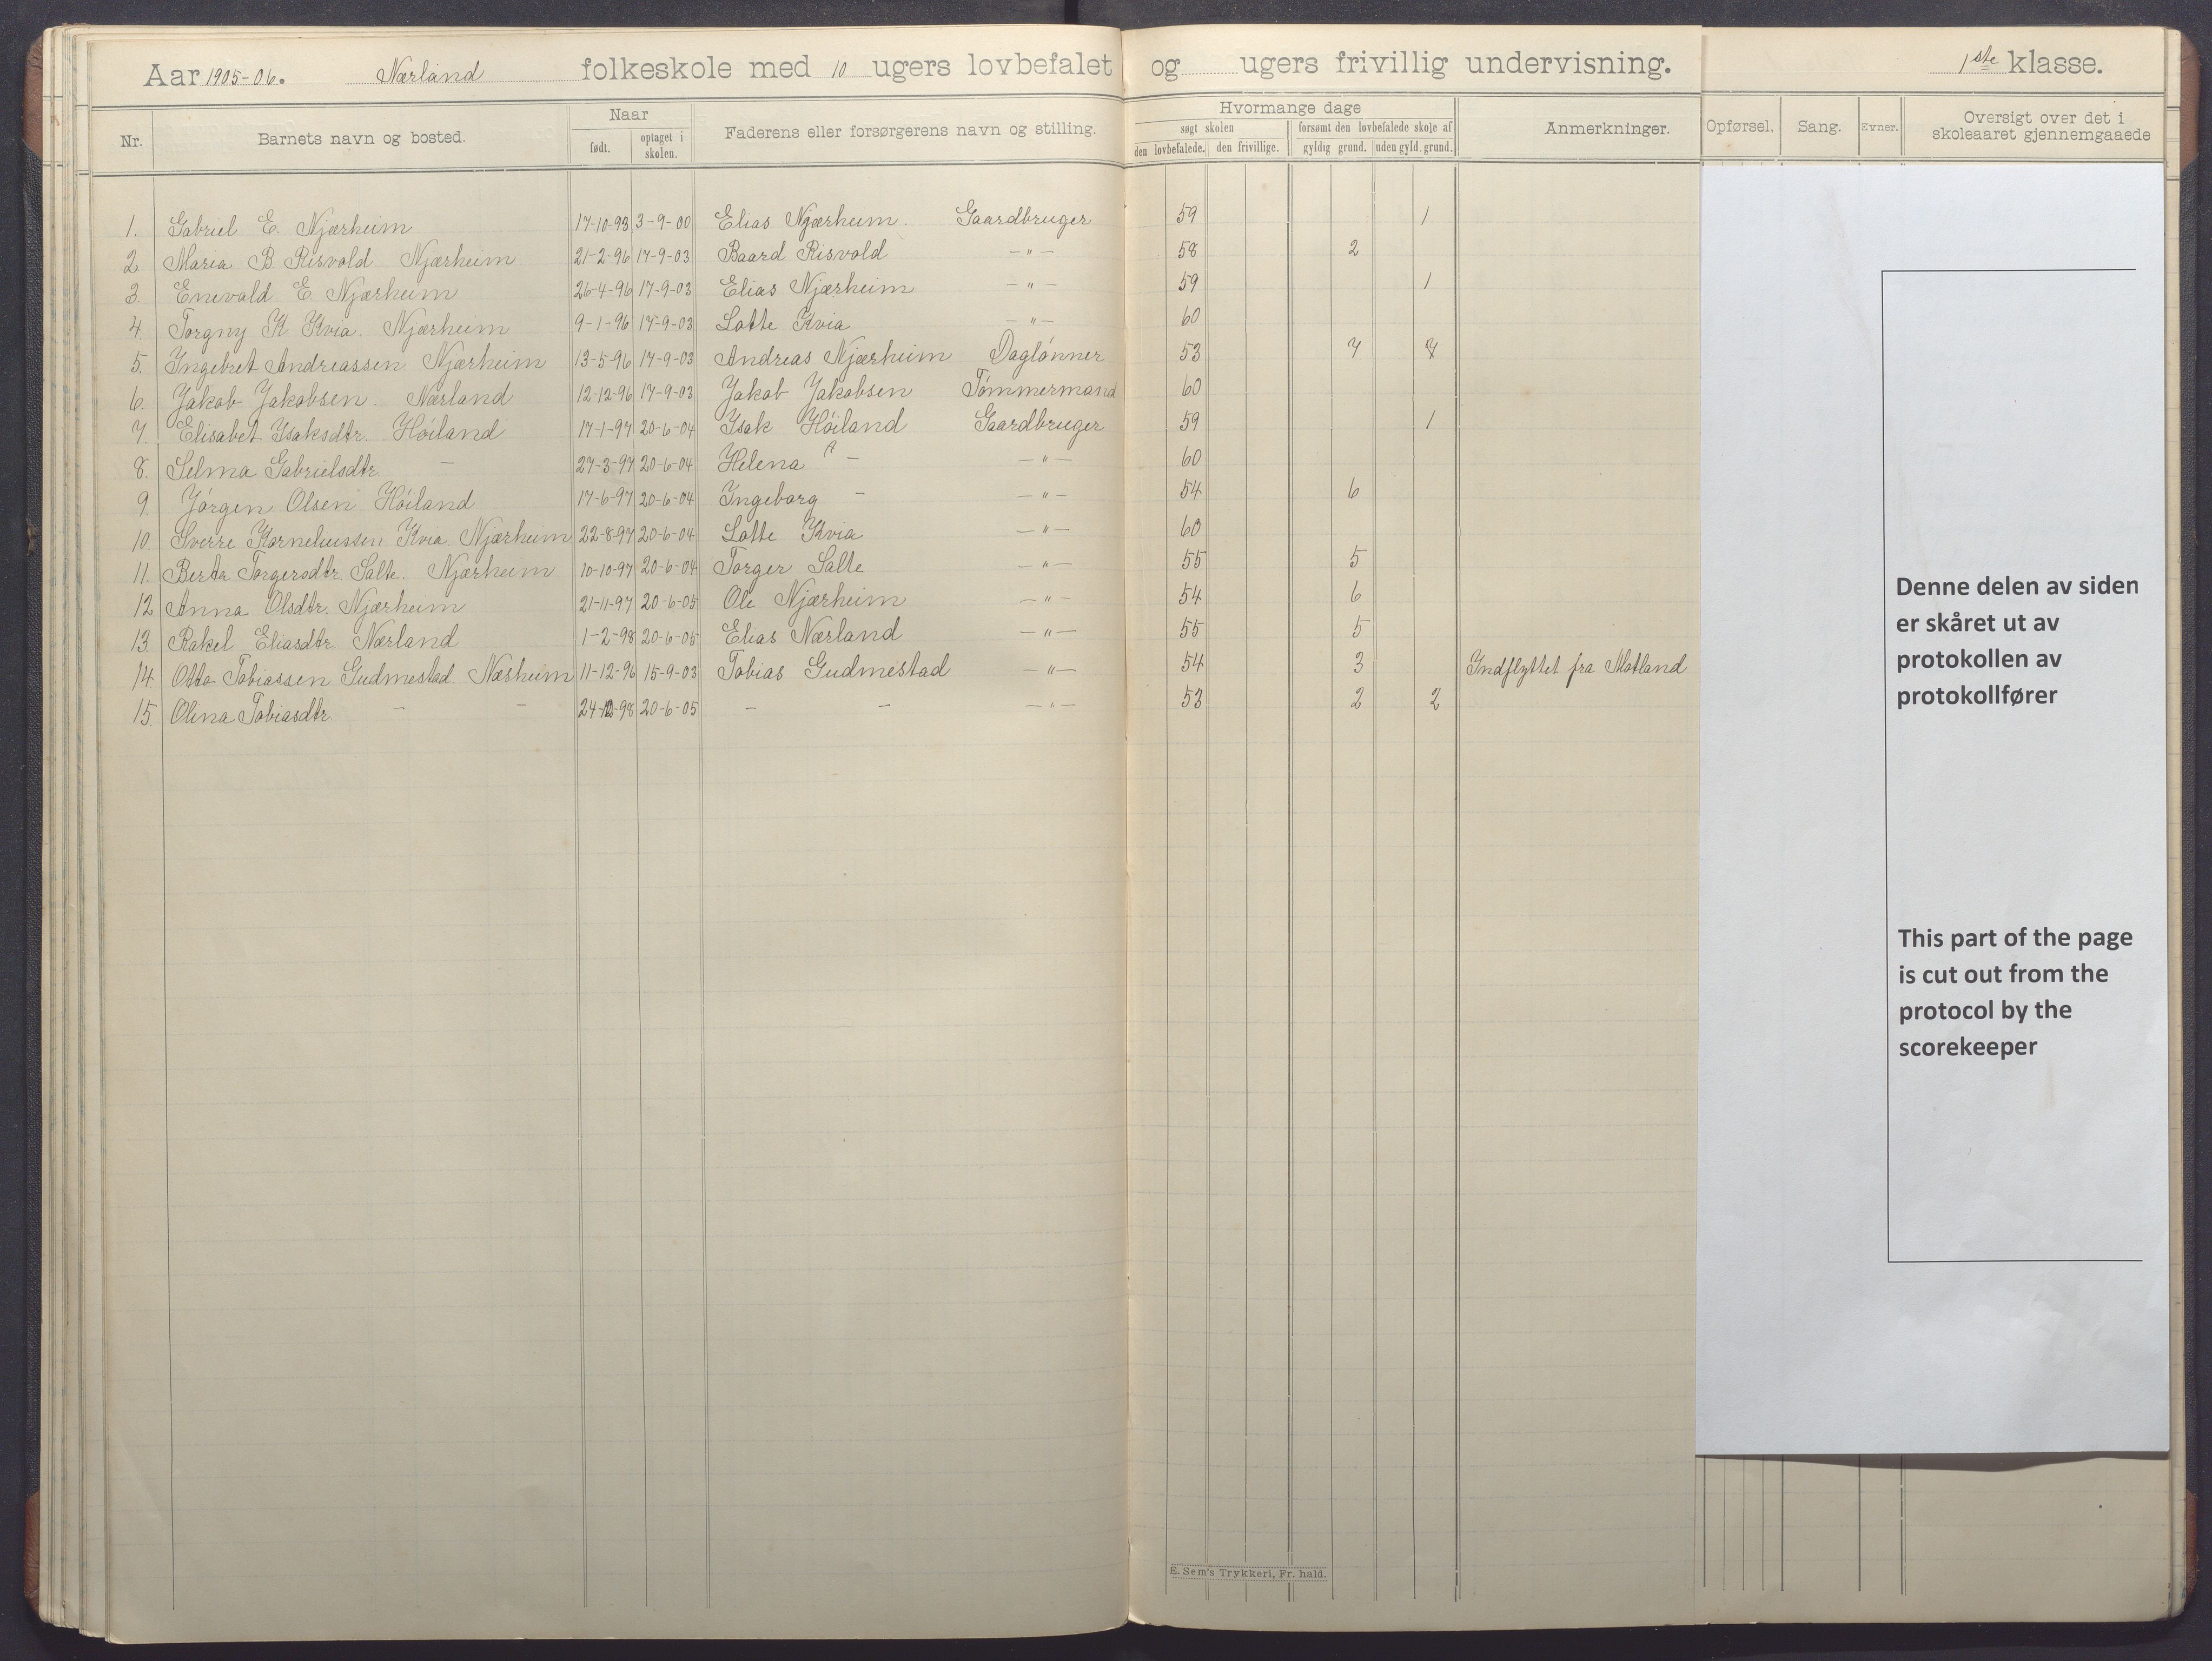 Aar 1905-06. Nærland folkeskole med 10 ugers lovbefalet og ugers frivillig undervisning. 1ste klasse.
Nr. Barnets navn og bosted. Naar født. optaget i skolen. Faderens eller forsørgerens navn og stilling. Hvormange dage søgt skolen den lovbefalede. den frivillige. forsømt den lovbefalede skole af gyldig grund. uden gyld. grund. Anmerkninger. Opførsel. Sang. Evner. Oversigt over det i skoleaaret gjennemgaaede
1. Gabriel E. Njærheim 17-10-93 3-9-00 Elias Njærheim. Gaardbruger 59 1
2. Maria B Risvold Njærheim 21-2-96 17-9-03 Baard Risvold -"- 58 2
3. Enevald E. Njærheim 26-4-96 17-9-03 Elias Njærheim -"- 59 1
4. Torgny K. Kvia. Njærheim 9-1-96 17-9-03 Lotte Kvia -"- 60
5. Ingebret Andreassen Njærheim 13-5-96 17-9-03 Andreas Njærheim Daglønner 53 7
6. Jakob Jakobsen. Nærland 12-12-96 17-9-03 Jakob Jakobsen Tømmermand 60
7. Elisabet Isaksdtr. Høiland 17-1-97 20-6-04 Isak Høiland Gaardbruger 59 1
8. Selma Gabrielsdtr. - 27-3-97 20-6-04 Helena - -"- 60
9. Jørgen Olsen Høiland 17-6-97 20-6-04 Ingeborg - -"- 54 6
10. Sverre Korneliussen Kvia Njærheim 22-8-97 20-6-04 Lotte Kvia -"- 60
11. Berta Torgersdtr. Salte. Njærheim 10-10-97 20-6-04 Torger Salte -"- 55 5
12. Anna Olsdtr. Njærheim 21-11-97 20-6-05 Ole Njærheim -"- 54 6
13. Rakel Eliasdtr. Nærland 1-2-98 20-6-05 Elias Nærland -"- 55 5
14. Otto Tobiassen Gudmestad Næsheim 11-12-96 15-9-03 Tobias Gudmestad -"- 54 3 Indflyttet fra Motland
15. Olina Tobiasdtr. - - 24-12-98 20-6-05 - - -"- 53 2 2
Denne delen av siden
er skåret ut av
protokollen av
protokollfører
This part of the page
is cut out from the
protocol by the
scorekeeper
E. Sem's Trykkeri, Fr. hald.